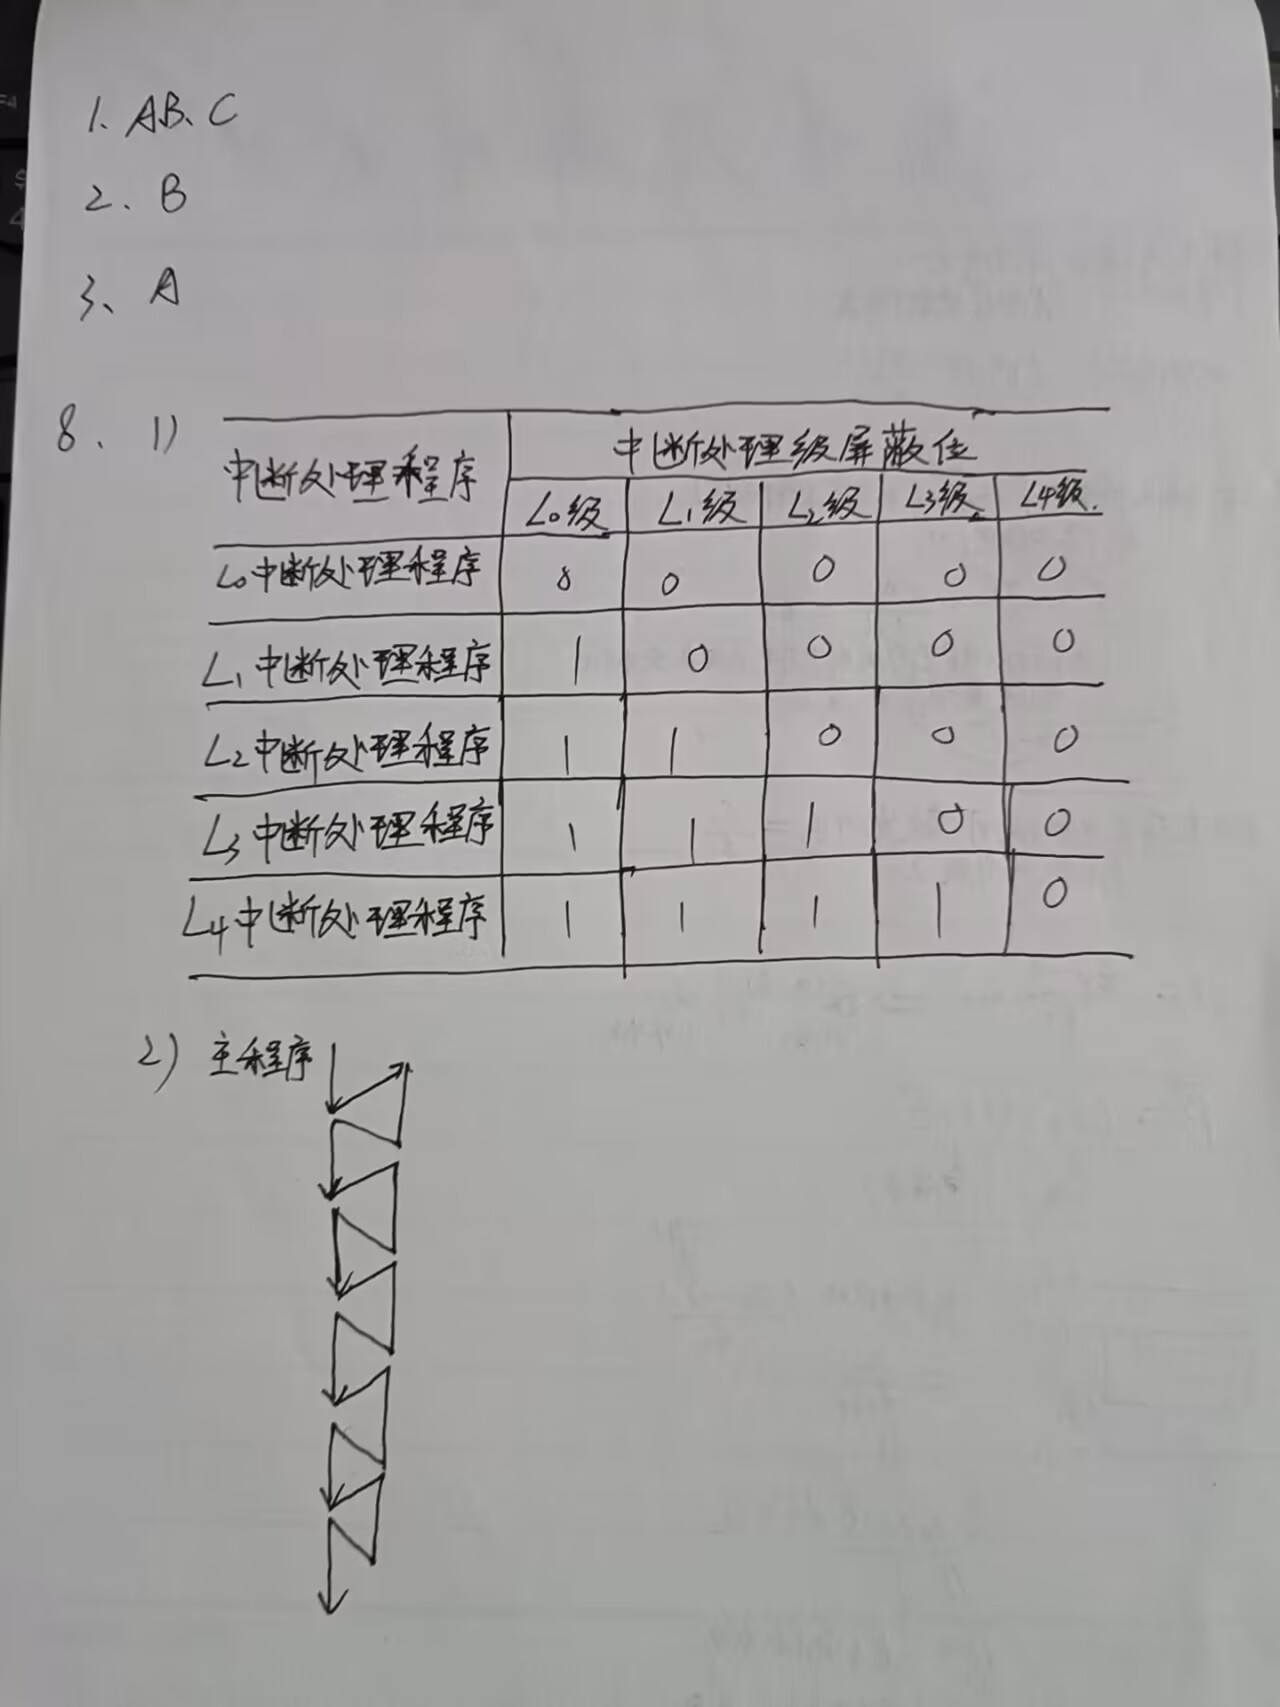 1. AB、C
2. B
3、A
8. 1)
中断处理程序 中断处理级屏蔽位
L0级 L1级 L2级 L3级 L4级.
L0中断处理程序 0 0 0 0 0
L1中断处理程序 1 0 0 0 0
L2中断处理程序 1 1 0 0 0
L3中断处理程序 1 1 1 0 0
L4中断处理程序 1 1 1 1 0
2) 主程序